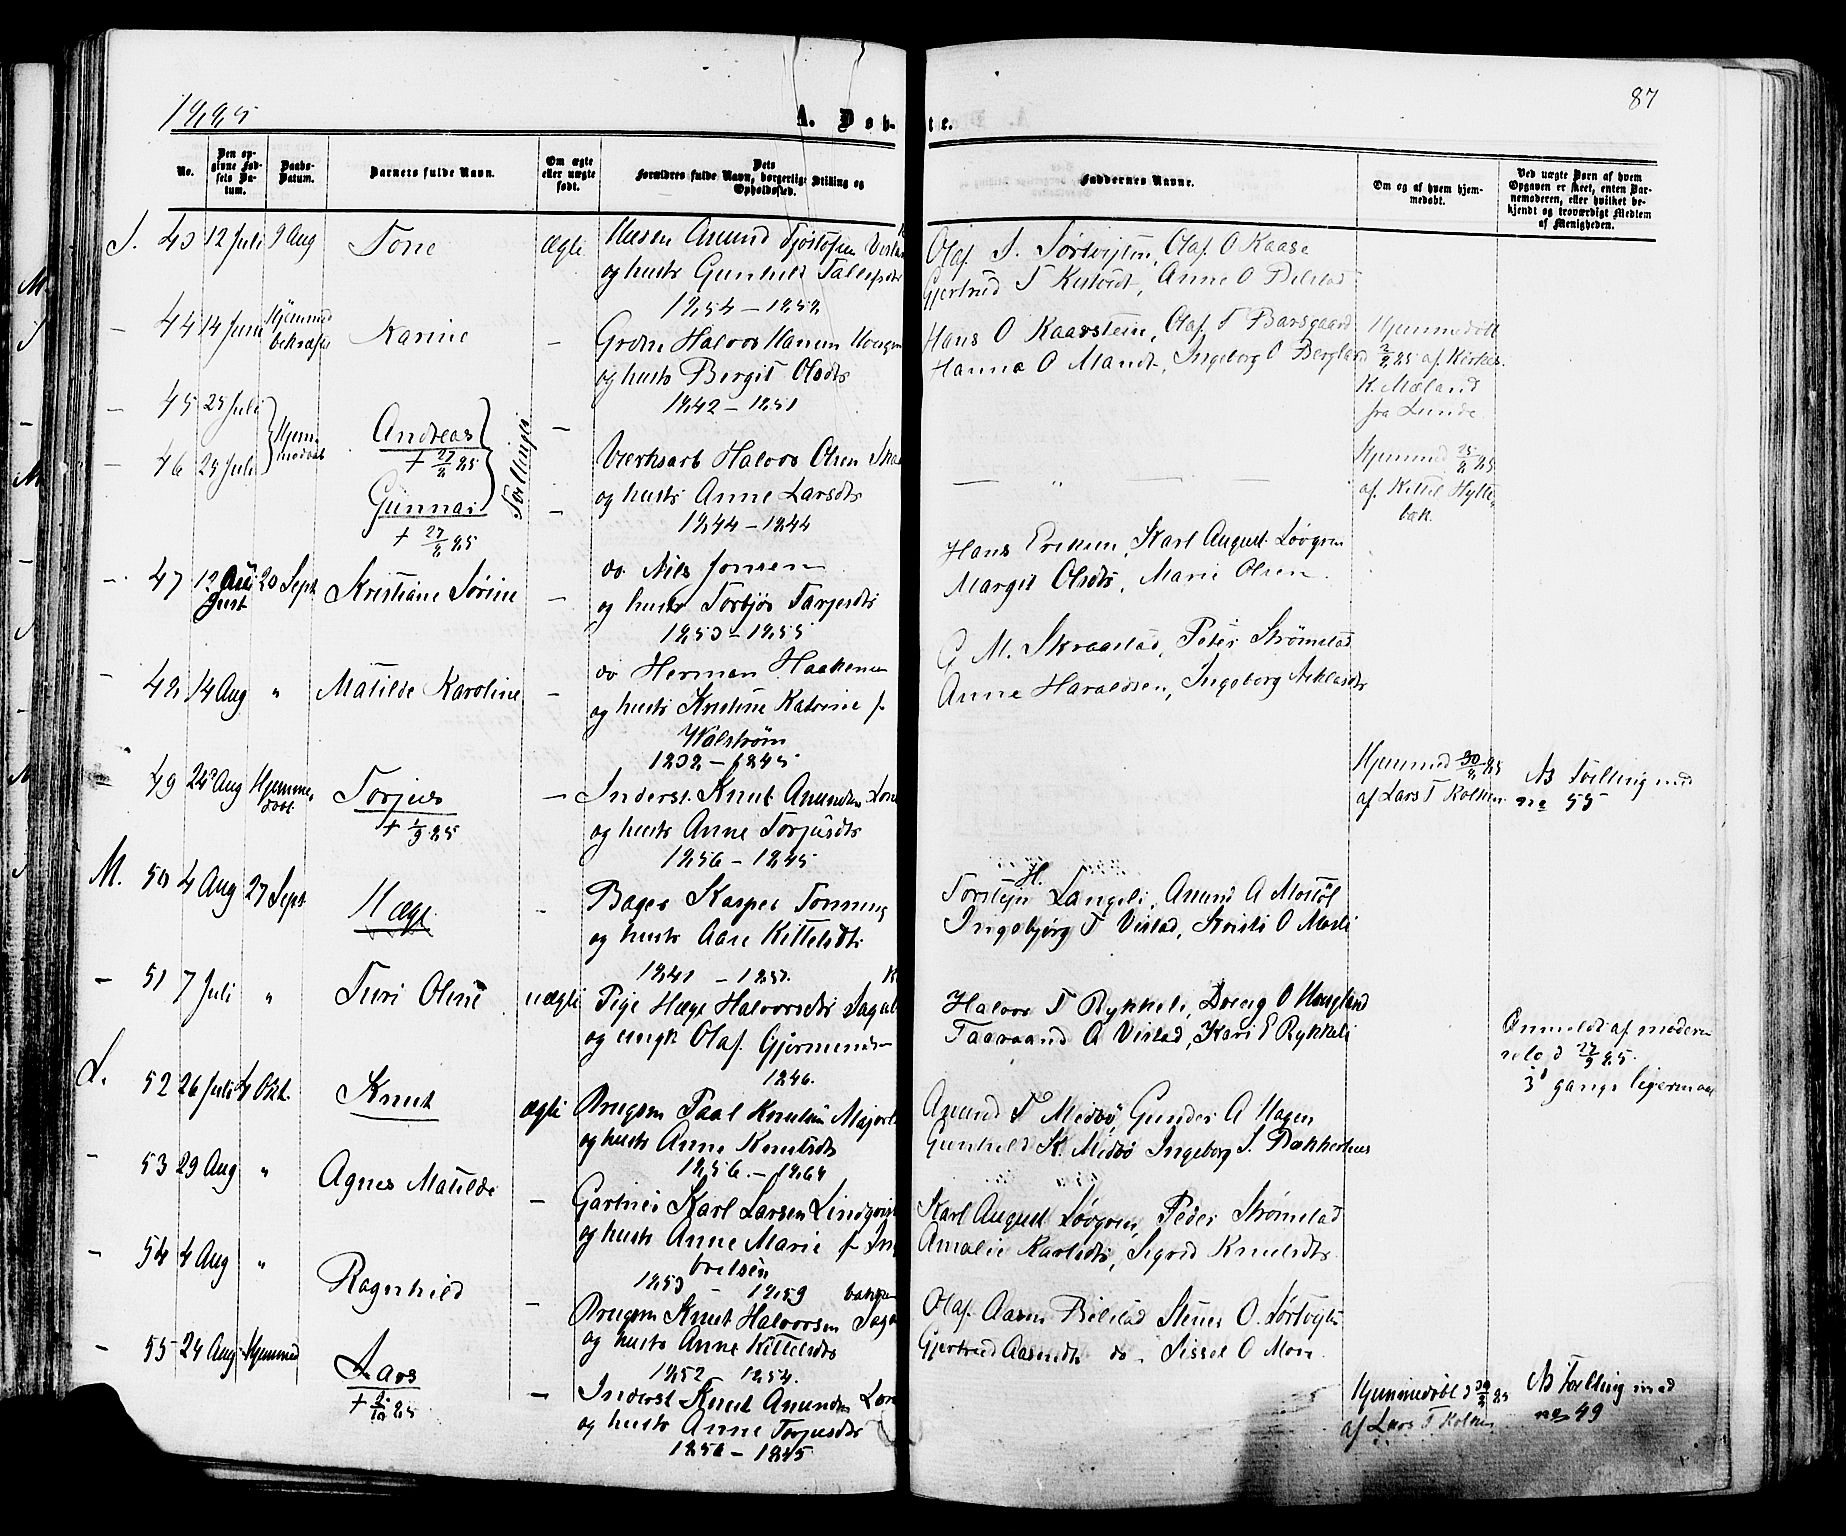 1885
A. Døbte.
87
No.
Den opgivne Fødsels Datum.
Daabs-Datum.
Barnets fulde Navn.
Om ægte eller uægte født.
Dets Forældres fulde Navn, borgerlige Stilling og Opholdssted.
Faddernes Navne.
Om og af hvem hjemmedøbt.
Ved uægte Børn af hvem Opgaven er skeet, enten Barnemoderen, eller hvilket bekjendt og troværdigt Medlem af Menigheden.
43 12 Juli 9 Aug Tone ægte Husm Anund Tjøstofsen
og hustr Gunhild
1854 – 1852
Olaf Sørtvejten, Olaf O Kaase
Gjertrud T Anne O Bilstad
44 14 Juni Hjemmed bekræft Karine – Halvor Hansen
og hustr Bergit Olsdtr
1842 – 1851
Hans O Kaarstein, Olaf T Barsgaard
Hanna O Mandt, Ingeborg O Bergland
Hjemmedøbt
2/8 85 af Kirkes.
K. Mæland
fra Lunde
45 25 Juli Hjemmedøbt Andreas –
+ 27/8 85
Tvillinger
46 25 Juli Gunnar –
+ 27/8 85
Værksarb Halvor Olsen
og hustr Anne Larsdtr
1844 – 1844
Hjemmed 25/8 85
af Kittil Hyttebak.
– 47 12 August 20 Sept Kristiane Sørine – do Nils Jonsen
og hustr Torbjør Tarjesdtr
1853 – 1855
Hans Eriksen, Karl August Løvgren
Margit Olsdtr, Marie Olsen
– 48 14 Aug " Matilde Karoline – do Herman Haakensen
og hustr Kristine Katrine f
Walstrøm
1832 – 1845
G M. Skraastad, Peter Strømstad
Anne Haraldsen, Ingeborg Aslaksdtr
– 49 24 Aug Hjemmedøbt Torjus –
+ 1/9 85
Inderst Knut Anundsen
og hustr Anne Torjusdtr
1856 – 1845
Hjemmed 30/8 85
af Lars T Kolken
NB Tvilling med
no 55
M. 50 4 Aug 27 Sept Hæge – Bager Kasper Tonning
og hustr Aase Kittelsdtr
1841 – 1857.
Torstein H. Langeli, Anund A Mostøl
Ingebjørg T Vistad, Kristi O Mosli
– 51 7 Juli " Turi Oline uægte Pige Hæge Halvorsdtr
og ungk Olaf Gjermunds–
1846.
Halvor T Rykkeli, Dreng O Haugland
Taaraand A Vistad, Kari E Rykkeli
Anmeldt af moderen
27/9 85.
3' gangs leiermaal
L. 52 26 Juli 4 Okt. Knut ægte Brugsm Paal Knutsen
og hustr Anne Knutsdtr
1856. – 1864
Anund T Medbø, Gunder A Hagen
Gunhild K. Medbø Ingeborg S. Bakkerhus
– 53 29 Aug " Agnes Matilde – Gartner Karl Larsen Lindqvist
og hustr Anne Marie f
1853 – 1859
Karl August Løvgren, Peder Strømstad
Amalie Karlsdtr, Sigrid Knutsdtr
– 54 4 Aug " Ragnhild – Brugsm Knut Halvorsen
og hustr Anne Kittelsdtr
1852 1854.
Olaf Aasen Bilstad Stener O. Sørtvejten
Gjertrud Aasmdtr do Sissel O Moen
– 55 24 Aug Hjemmed Lars –
+ 2/10 85
Inderst Knut Anundsen
og hustr Anne Torjusdtr
1856 – 1845
Hjemmedøbt d 30/8 85
af Lars T Kolken
NB Tvilling med
no 49